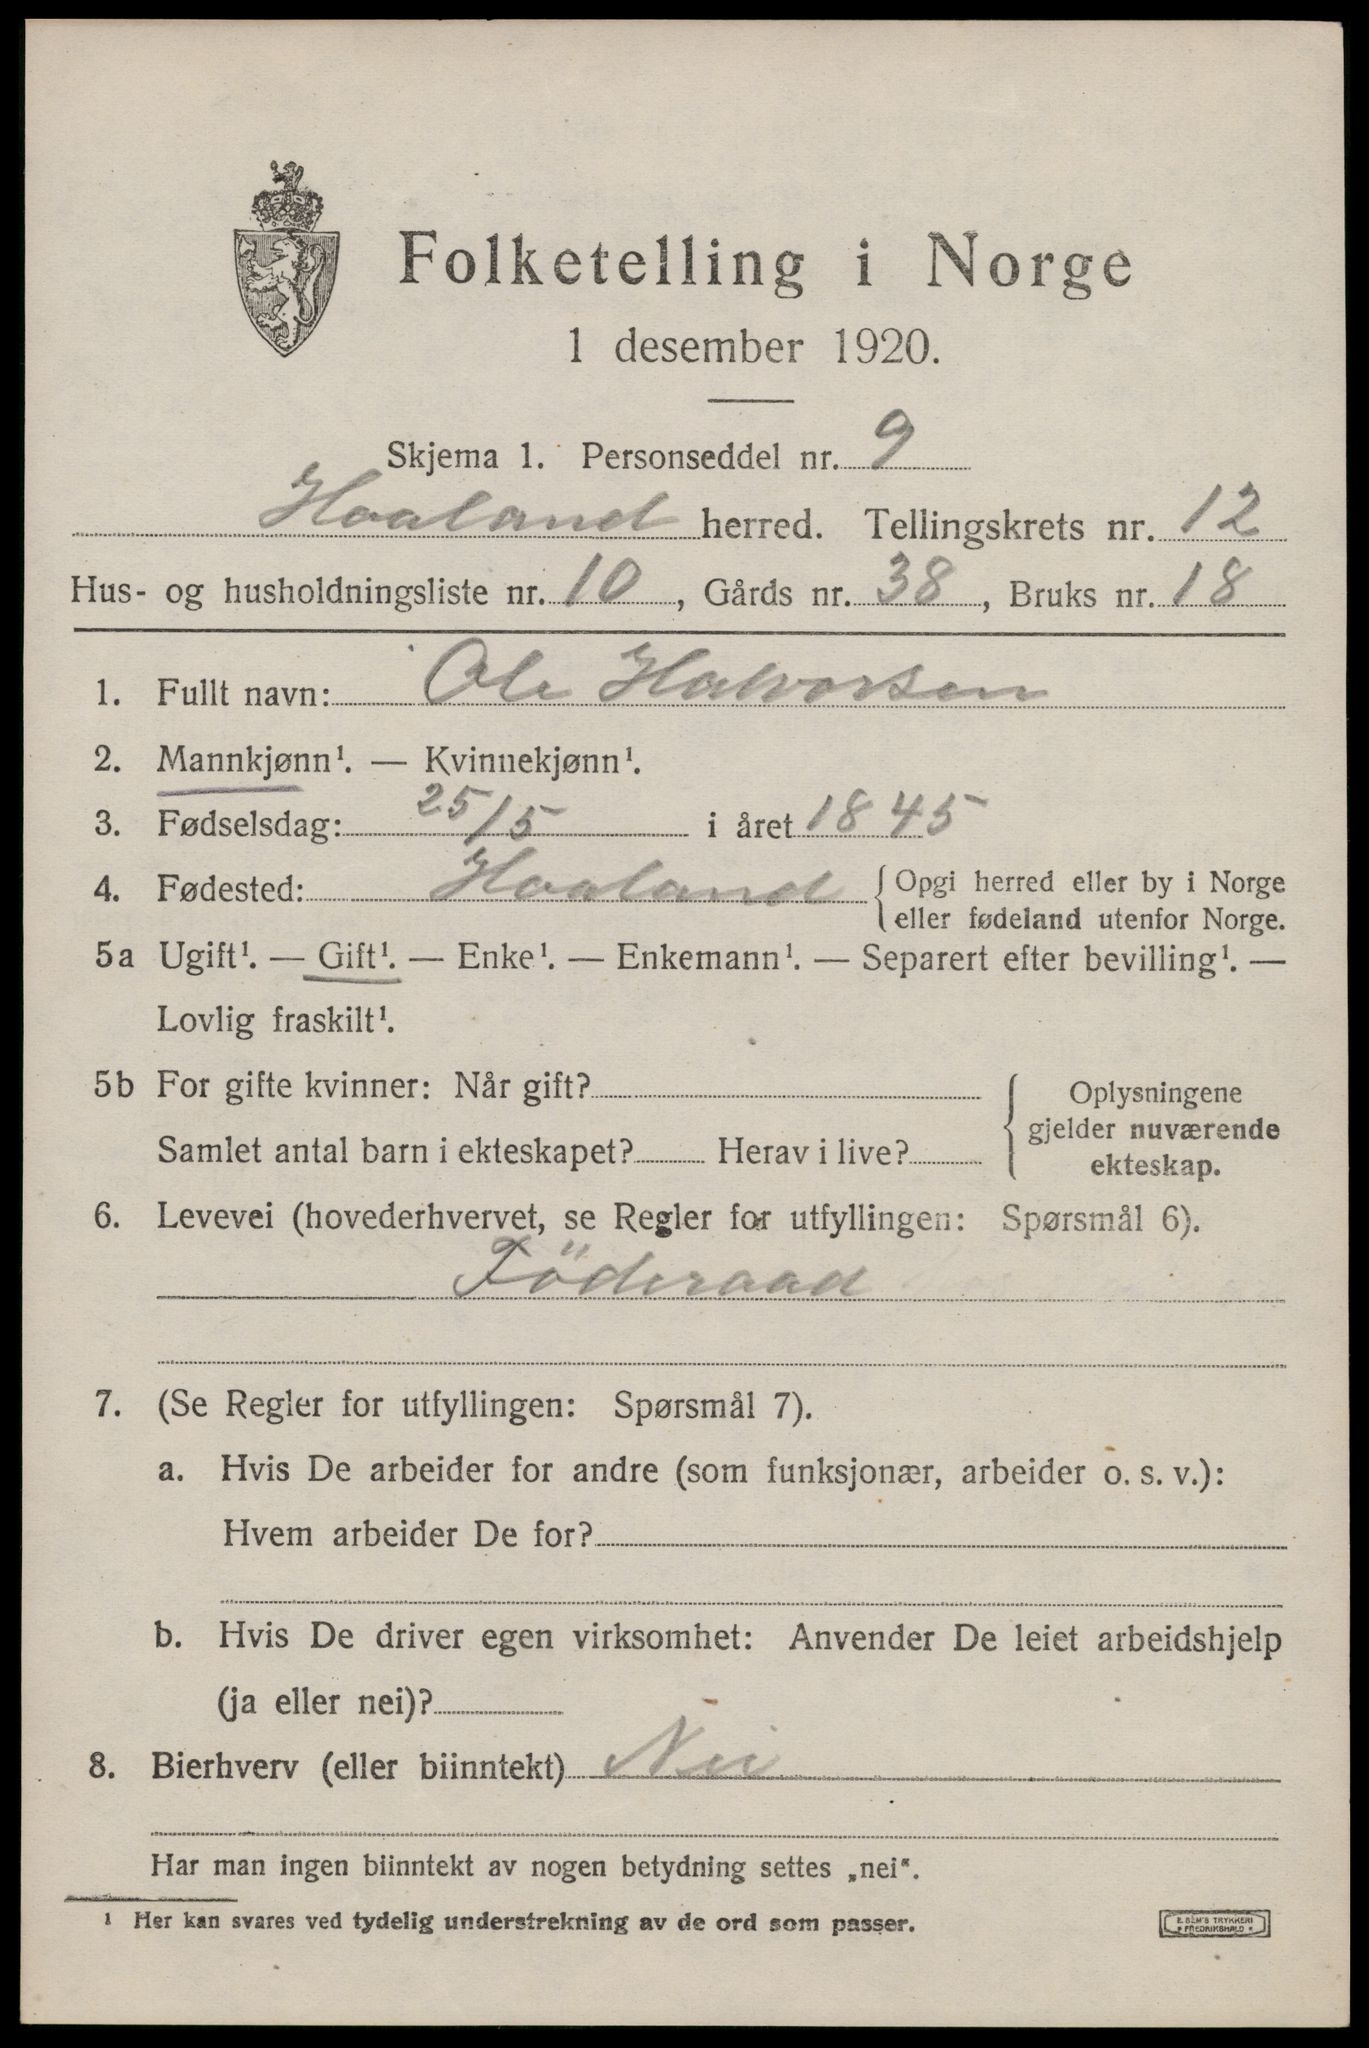 Folketelling i Norge
1 desember 1920.
Skjema 1. Personseddel nr. 9
Haaland herred. Tellingskrets nr. 12
Hus- og husholdningsliste nr. 10, Gårds nr. 38, Bruks nr. 18
1. Fullt navn: Ole Halvorsen
2. Mannkjønn¹. — Kvinnekjønn¹.
3. Fødselsdag: 25/5 i året 1845
4. Fødested: Haaland {Opgi herred eller by i Norge
eller fødeland utenfor Norge.
5a Ugift¹. — Gift¹. — Enke¹. — Enkemann¹. — Separert efter bevilling¹. —
Lovlig fraskilt¹.
5b For gifte kvinner: Når gift?
Samlet antal barn i ekteskapet? Herav i live?
Oplysningene
gjelder nuværende
ekteskap.
6. Levevei (hovederhvervet, se Regler for utfyllingen: Spørsmål 6).
Föderaad
7. (Se Regler for utfyllingen: Spørsmål 7).
a. Hvis De arbeider for andre (som funksjonær, arbeider o. s. v.):
Hvem arbeider De for?
b. Hvis De driver egen virksomhet: Anvender De leiet arbeidshjelp
(ja eller nei)?
8. Bierhverv (eller biinntekt) Nei
Har man ingen biinntekt av nogen betydning settes „nei“.
¹ Her kan svares ved tydelig understrekning av de ord som passer.
E. SEM'S TRYKKERI
* FREDRIKSHALD *